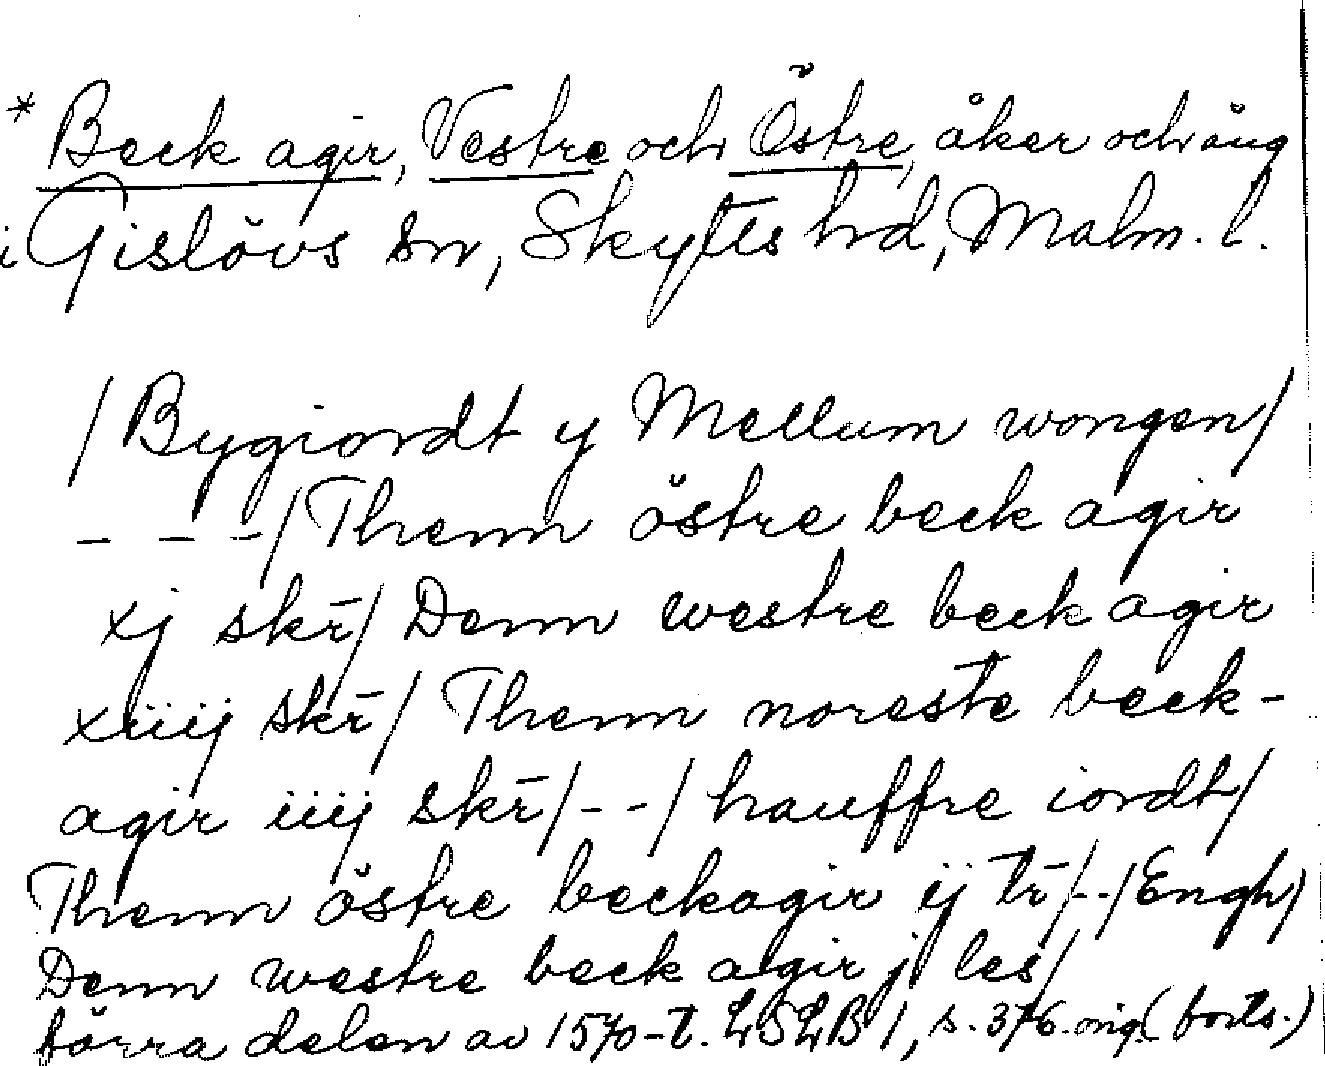 * Beck agir, Vestre och Östre, åker och äng
i Gislövs sn, Skytts hrd, Malm. l.
/ Bygiordt y Mellum wongen/
- - -/ Thenn östre beck agir
xj skr̄/ Denn westre beck agir
xiiij skr̄/ Thenn noreste beck-
agir iiij skr̄/ - - / hauffre iordt/
Thenn östre beckagir ij tr̄/ - - / Engh/
Denn westre beck agir j les/
förra delen av 1570-t. LSLB 1, s. 376. orig. (forts.)